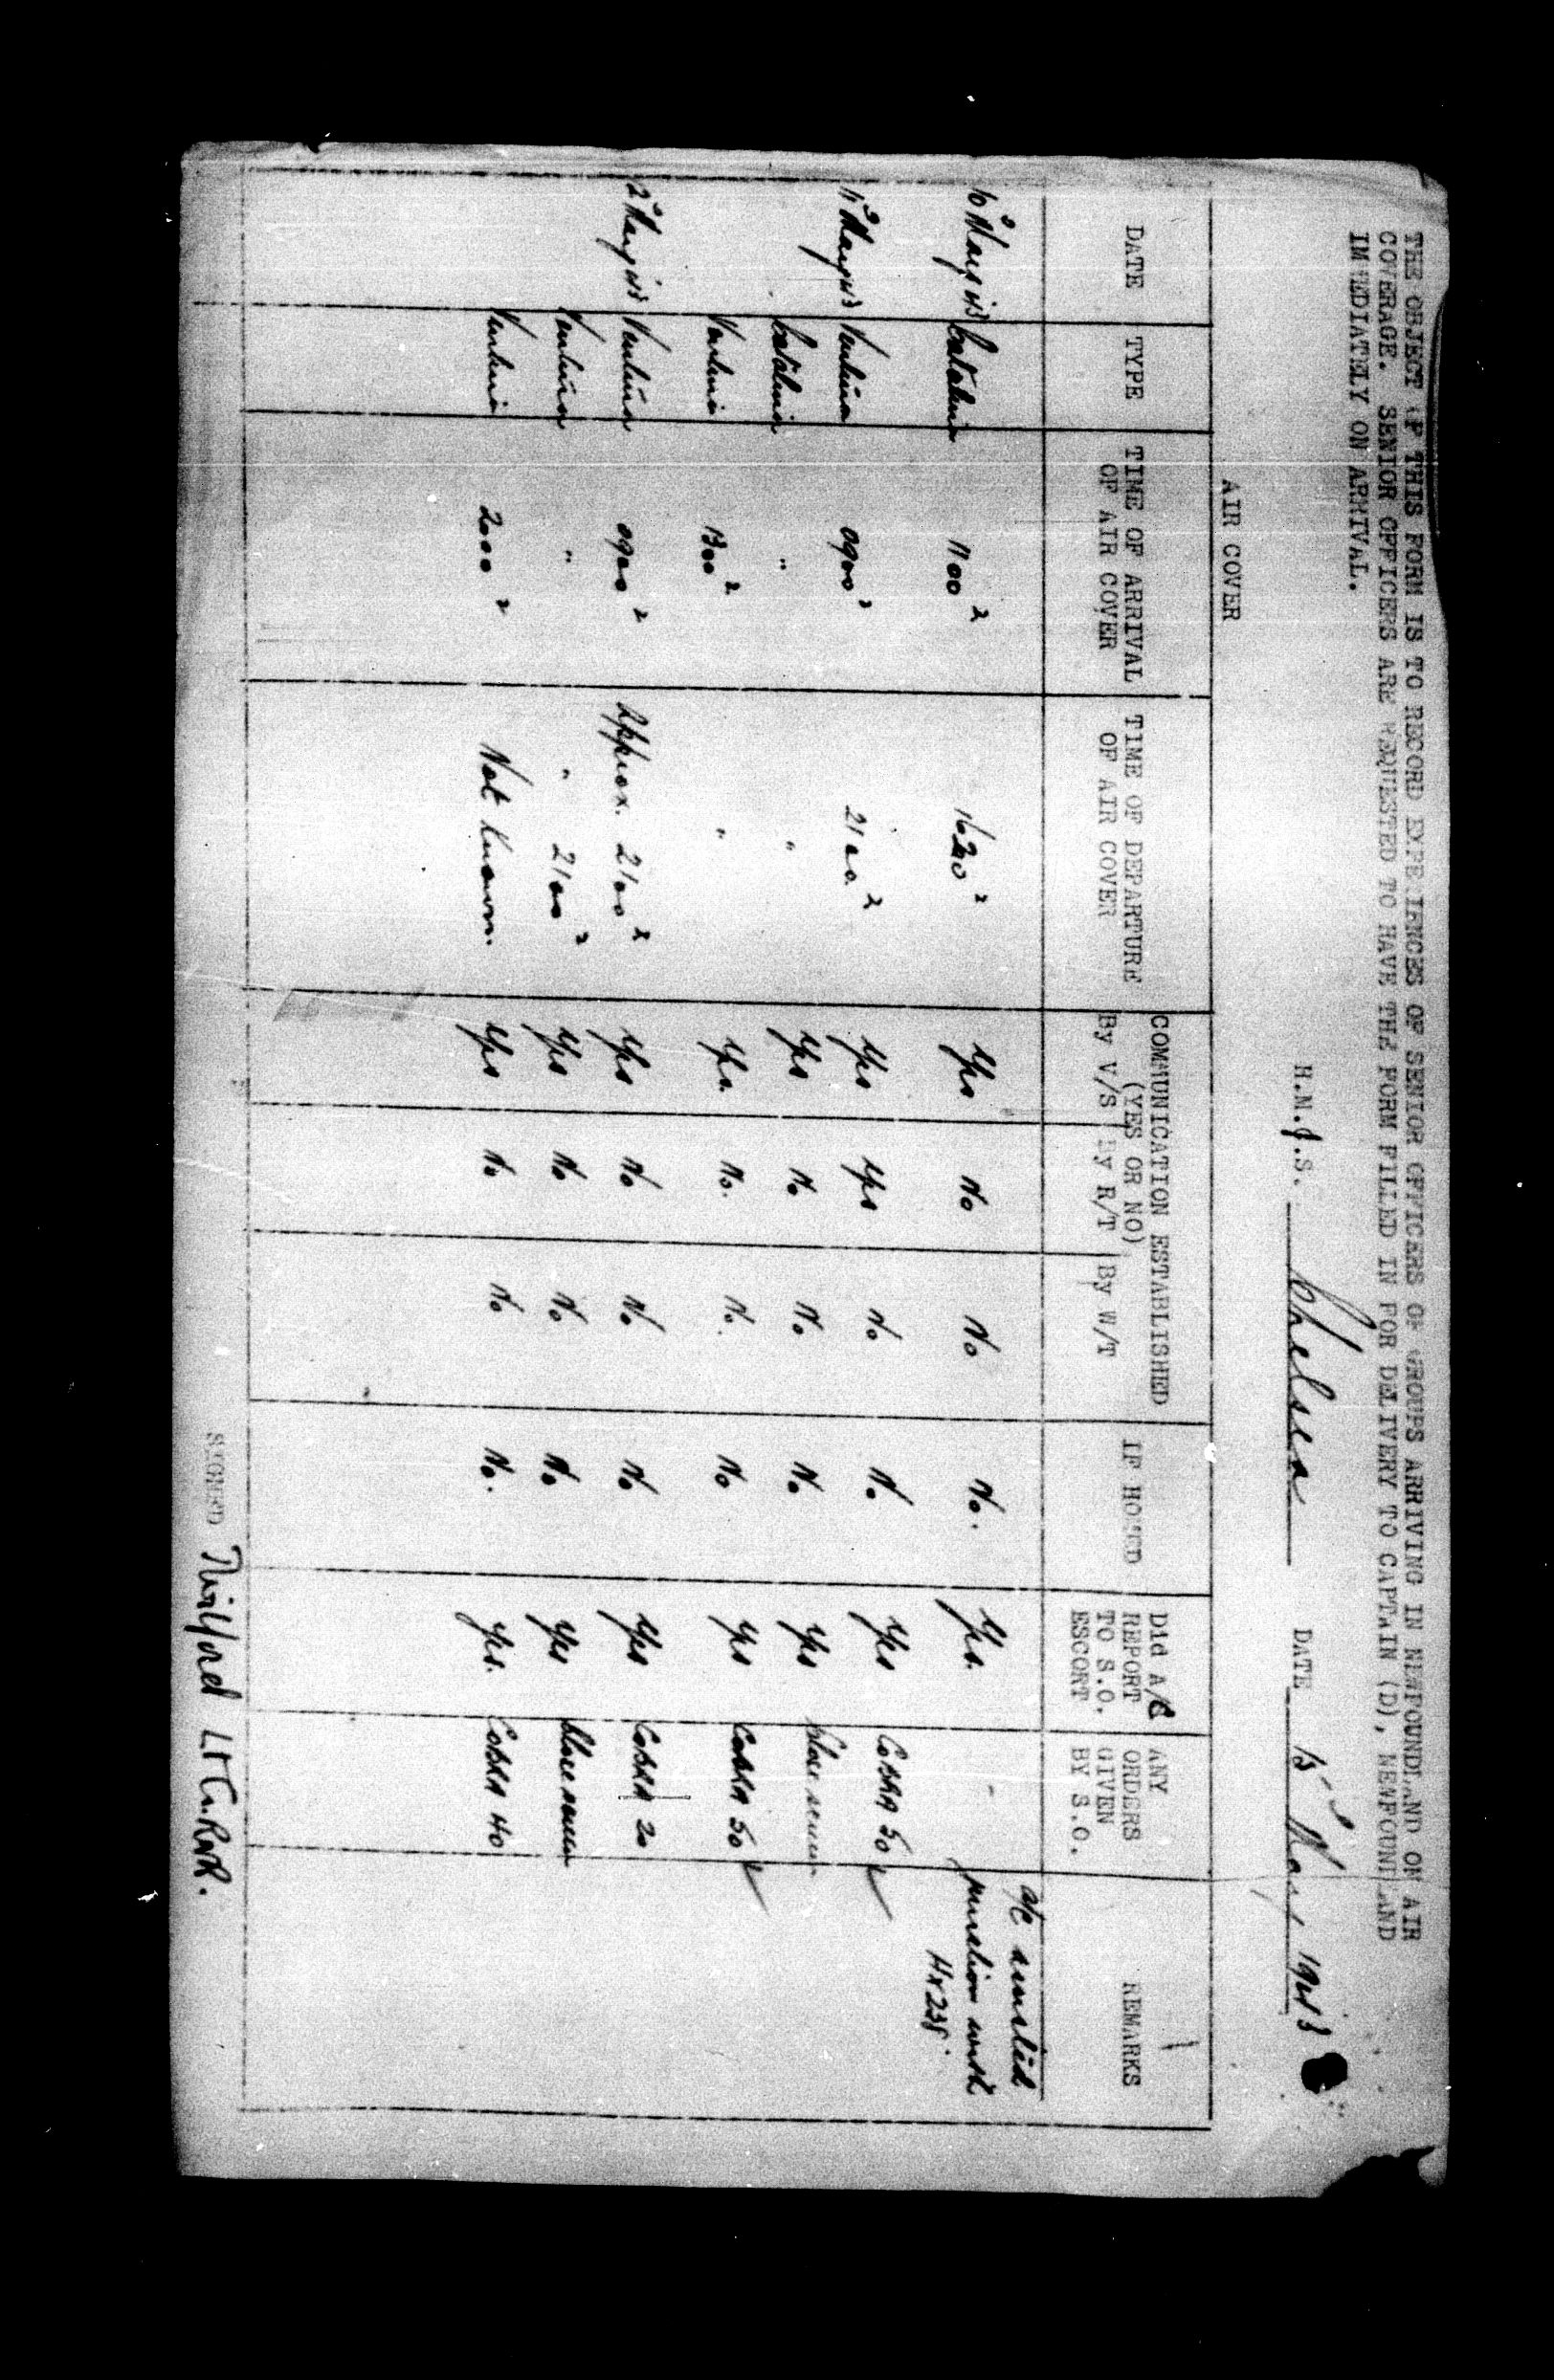 THE OBJECT OF THIS FORM IS TO RECORD EXPERIENCES OF SENIOR OFFICERS OF GROUPS ARRIVING IN NEWFOUNDLAND ON AIR
COVERAGE. SENIOR OFFICERS ARE REQUESTED TO HAVE THE FORM FILLED IN FOR DELIVERY TO CAPTAIN (D), NEWFOUNDLAND
IMMEDIATELY ON ARRIVAL.
H.M.S. Chelsea DATE 15 May 1943
AIR COVER
DATE TYPE TIME OF ARRIVAL OF AIR COVER TIME OF DEPARTURE OF AIR COVER COMMUNICATION ESTABLISHED (YES OR NO) By V/S By R/T By W/T IF HOMED Did A/C REPORT TO S.O. ESCORT ANY ORDERS GIVEN BY S.O. REMARKS
10 May 43 Catalina 1100 z 1620 z Yes No No No. Yes. - a/c assisted junction with Hx 238.
11 May 43 Ventura 0900 z 2100 z Yes Yes No No. Yes COBRA 50
Catalina " " Yes No No No Yes Close screen
Ventura 1300 z " Yes. No. No. No Yes COBRA 50
12 May 43 Ventura 0900 z Approx. 2100 z Yes No No No Yes COBRA 20
Ventura " " 2100 z Yes No No No Yes Close screen
Ventura 2000 z Not known. Yes No No No. Yes. COBRA 40
SIGNED Lt Cdr RNR.